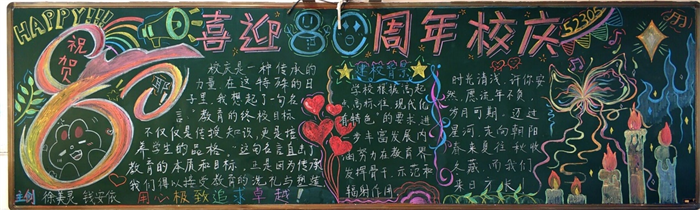 HAPPY!!!
祝贺
喜迎80周年校庆
52305
校庆是一种传承的
力量,在这特殊的日
子里,我想起了一句名
言:教育的终极目标
不仅仅是传授知识,更是培
养学生的品格。这句名言直击了
教育的本质和目标,正是因为传承
我们得以接受教育的洗礼与塑造
建校背景
学校根据"高起
点、高标准、现代化
有特色"的要求进
一步丰富发展内
涵,努力在教育界
发挥骨干、示范和
辐射作用
时光清浅,许你安
然,愿流年不负,
岁月可期,迈过
星河,走向朝阳
春来夏往,秋收
冬藏,而我们
来日方长
主创 徐美灵 钱安依
用心极致追求卓越